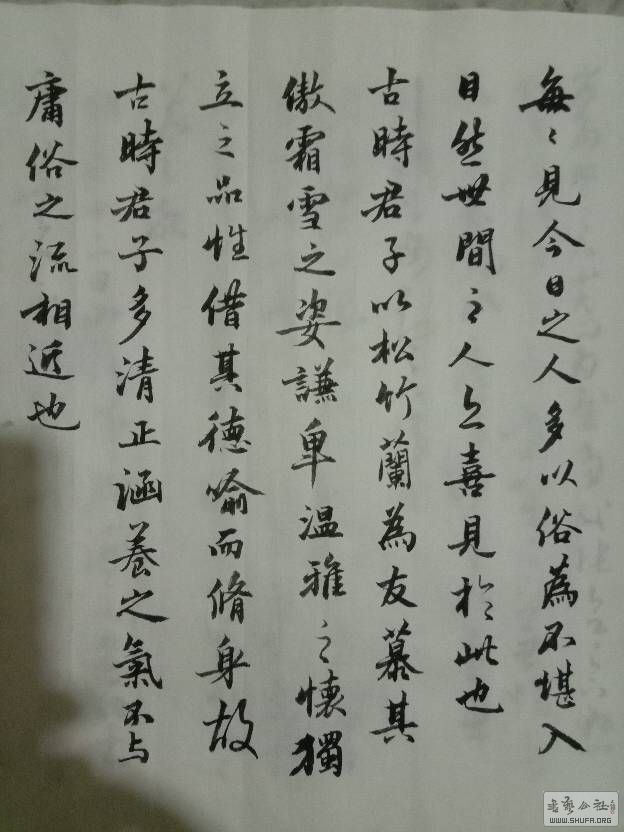 每〻見今日之人多以俗為不堪入
目然世間之人立喜見於此也
古時君子以松竹蘭為友慕其
傲霜雪之姿謙卑温雅之懷獨
立之品性借其德喻而脩身故
古時君子多清正涵養之氣不与
庸俗之流相近也
WWW.SHUFA.ORG